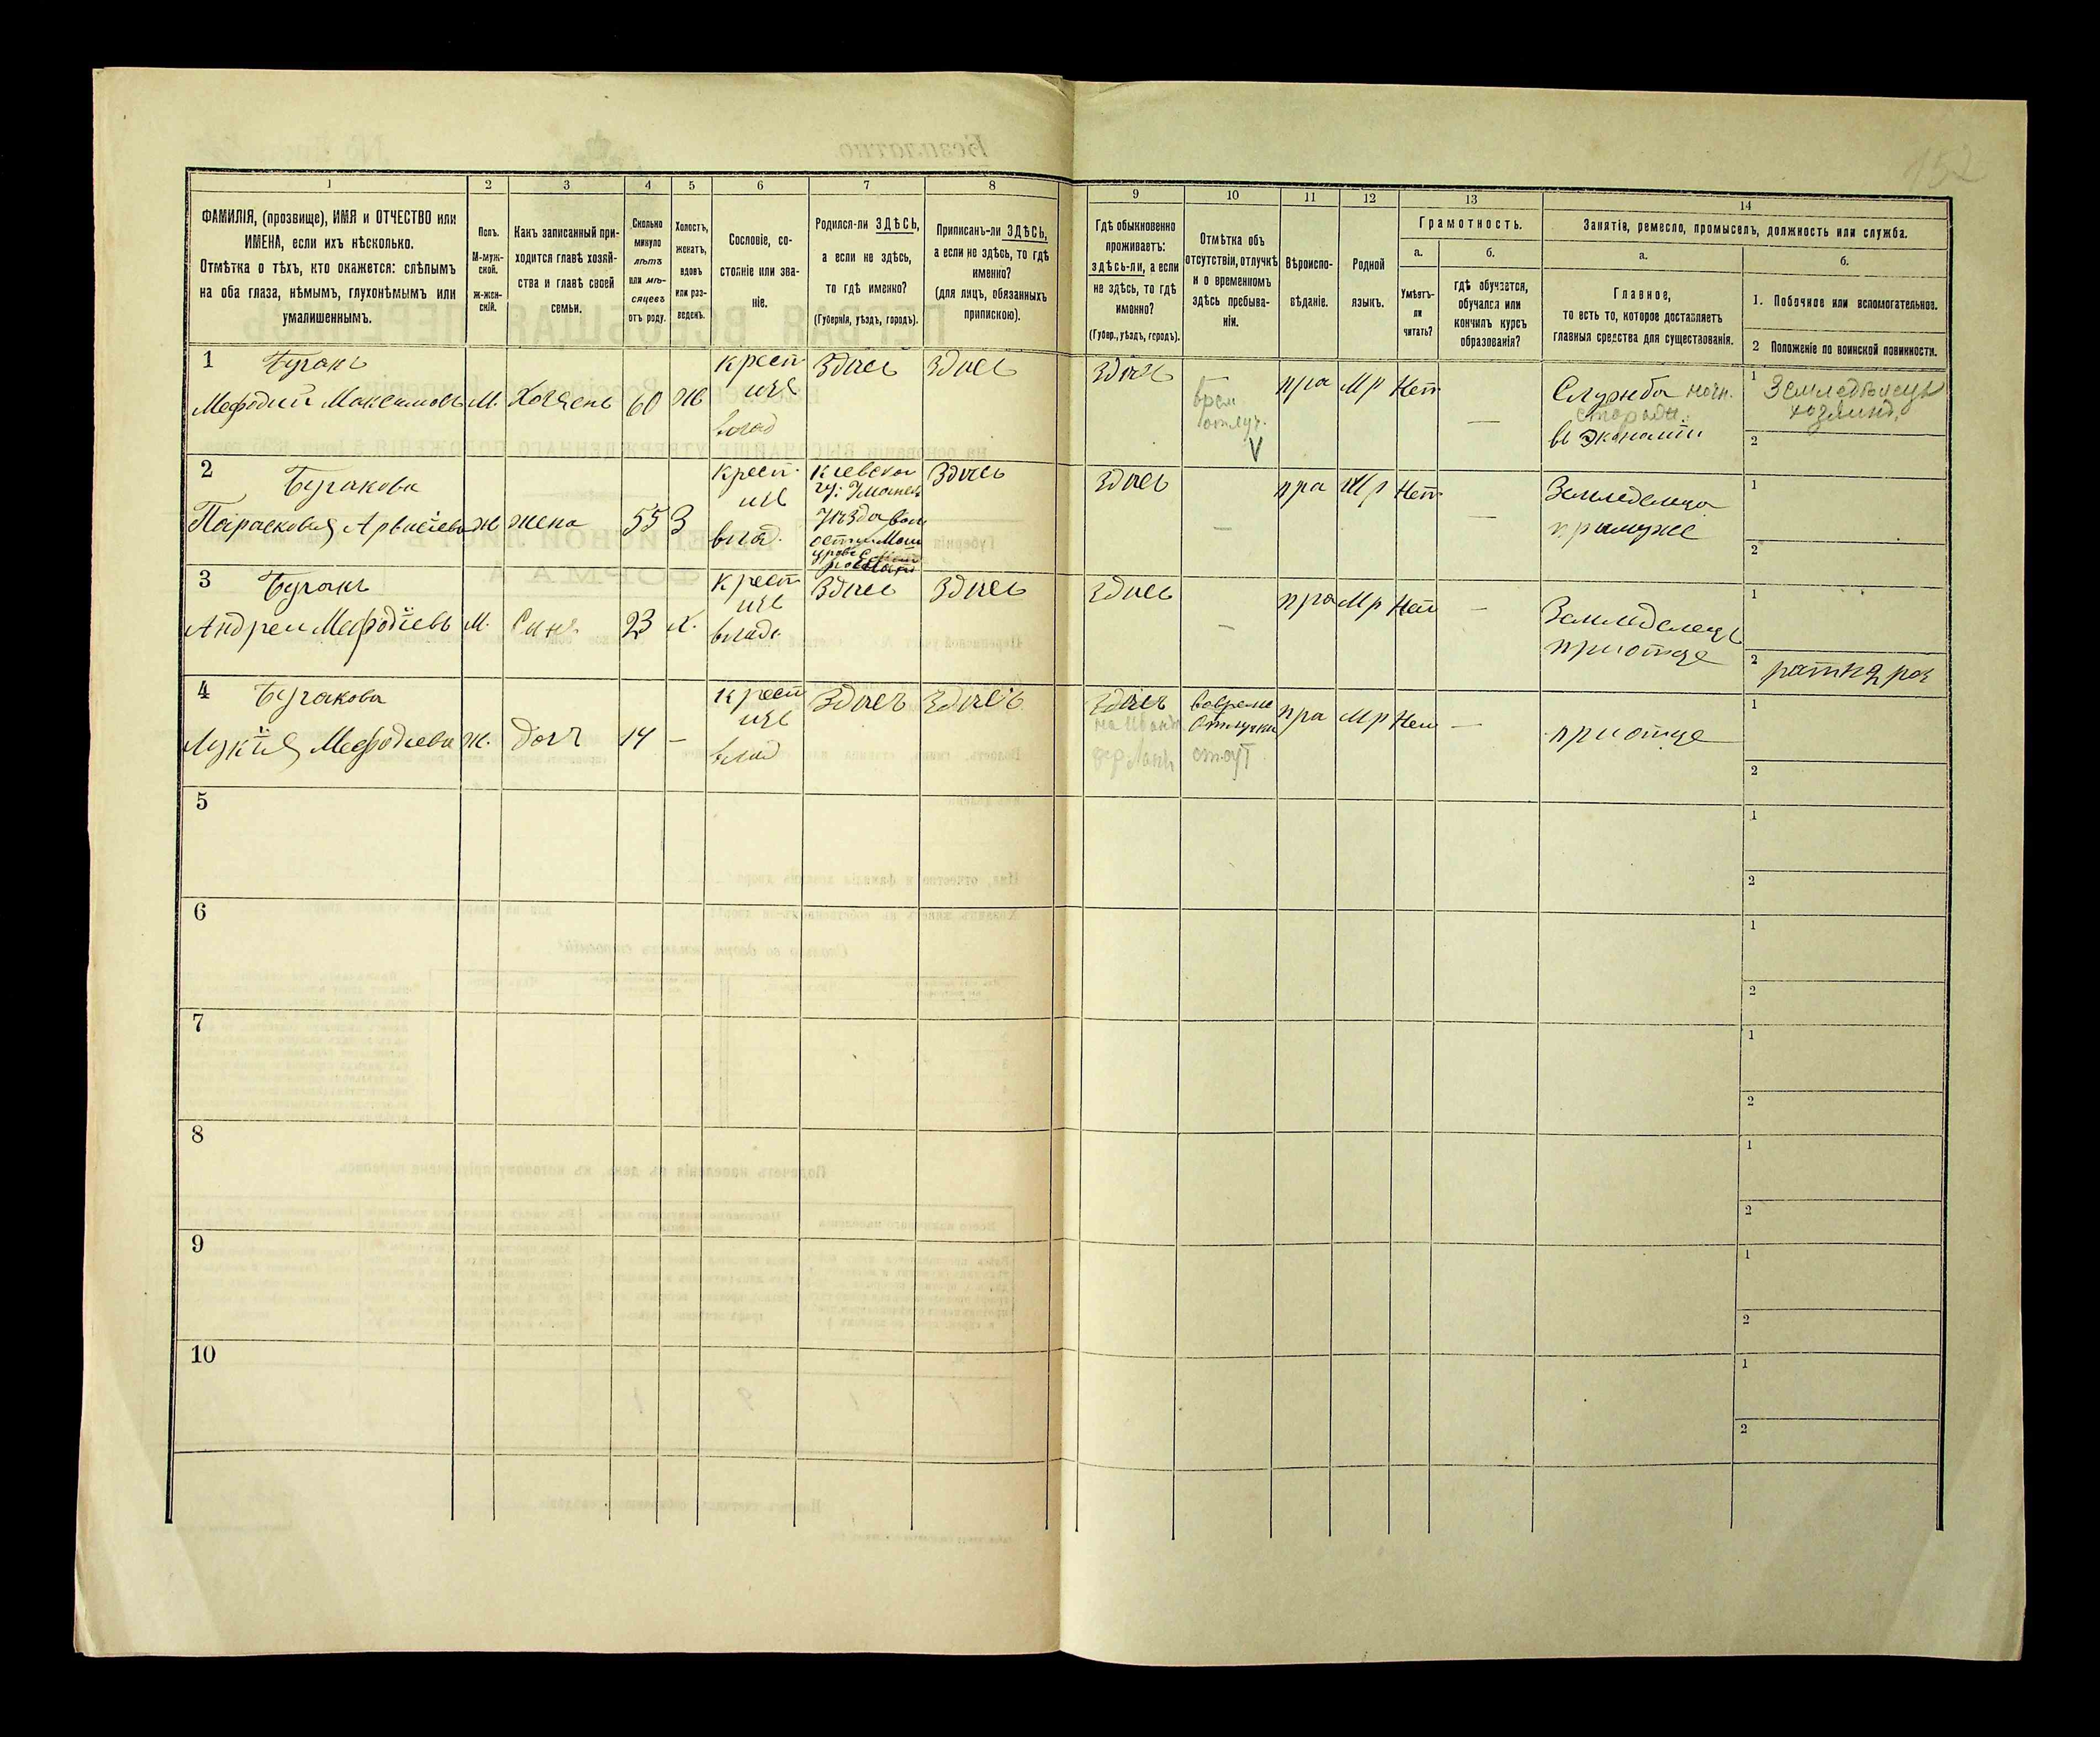 152
1 2 3 4 5 6 7 8 9 10 11 12 13 14
ФАМИЛІЯ, (прозвище), ИМЯ и ОТЧЕСТВО или
ИМЕНА, если ихъ нѣсколько.
Отмѣтка о тѣхъ, кто окажется: слѣпымъ
на оба глаза, нѣмымъ, глухонѣмымъ или
умалишеннымъ.
Полъ.
М-муж-
ской.
Ж-жен-
скій.
Какъ записанный при-
ходится главѣ хозяй-
ства и главѣ своей
семьи.
Сколько
минуло
лѣтъ
или мѣ-
сяцевъ
отъ роду.
Холостъ,
женатъ,
вдовъ
или раз-
веденъ.
Сословіе, со-
стояніе или зва-
ніе.
Родился-ли ЗДѢСЬ,
а если не здѣсь,
то гдѣ именно?
(Губернія, уѣздъ, городъ).
Приписанъ-ли ЗДѢСЬ,
а если не здѣсь, то гдѣ
именно?
(для лицъ, обязанныхъ
припискою).
Гдѣ обыкновенно
проживаетъ:
здѣсь-ли, а если
не здѣсь, то гдѣ
именно?
(Губер., уѣздъ, городъ).
Отмѣтка объ
отсутствіи, отлучкѣ
и о временномъ
здѣсь пребыва-
ніи.
Вѣроиспо-
вѣданіе.
Родной
языкъ.
Грамотность.
а.
Умѣетъ-
ли
читать?
б.
гдѣ обучается,
обучался или
кончилъ курсъ
образованія?
Занятія, ремесло, промыселъ, должность или служба.
а.
Главное,
то есть то, которое доставляетъ
главныя средства для существованія.
б.
1. Побочное или вспомогательное.
2 Положеніе по воинской повинности.
1
Мефодий Максимовъ
М.
Хозяенъ
60
Ж
крест
изъ
влад
Здъсь
Здъсь
Здъсь
врем
отлуч.
V
пра
Мр
Нет
—
Служба ночн.
сторож.
въ Экономіи
1 Земледѣлецъ
хозяинъ
2
2
Бугакова
Парасковия
Ж
жена
55
З
крест.
изъ
влад.
Киевской
гу:
Уѣзда
Здъсь
Здъсь
—
пра
Мр
Нет
—
Земледелеца
примуже
1
2
3
Андреи Мефодіевъ
М.
Синъ
23
Х.
крест
изъ
влад.
Здъсь
Здъсь
Здъсь
—
пра
Мр
Нет
—
Земледелецъ
приотце
1
2 ратник раз
4
Бугакова
Лукія Мефодиева
Ж.
дочъ
14
—
крест
изъ
влад
Здъсь
Здъсь
Здъсь
пра
Мр
Нет
—
приотце
1
2
5
1
2
6
1
2
7
1
2
8
1
2
9
1
2
10
1
2